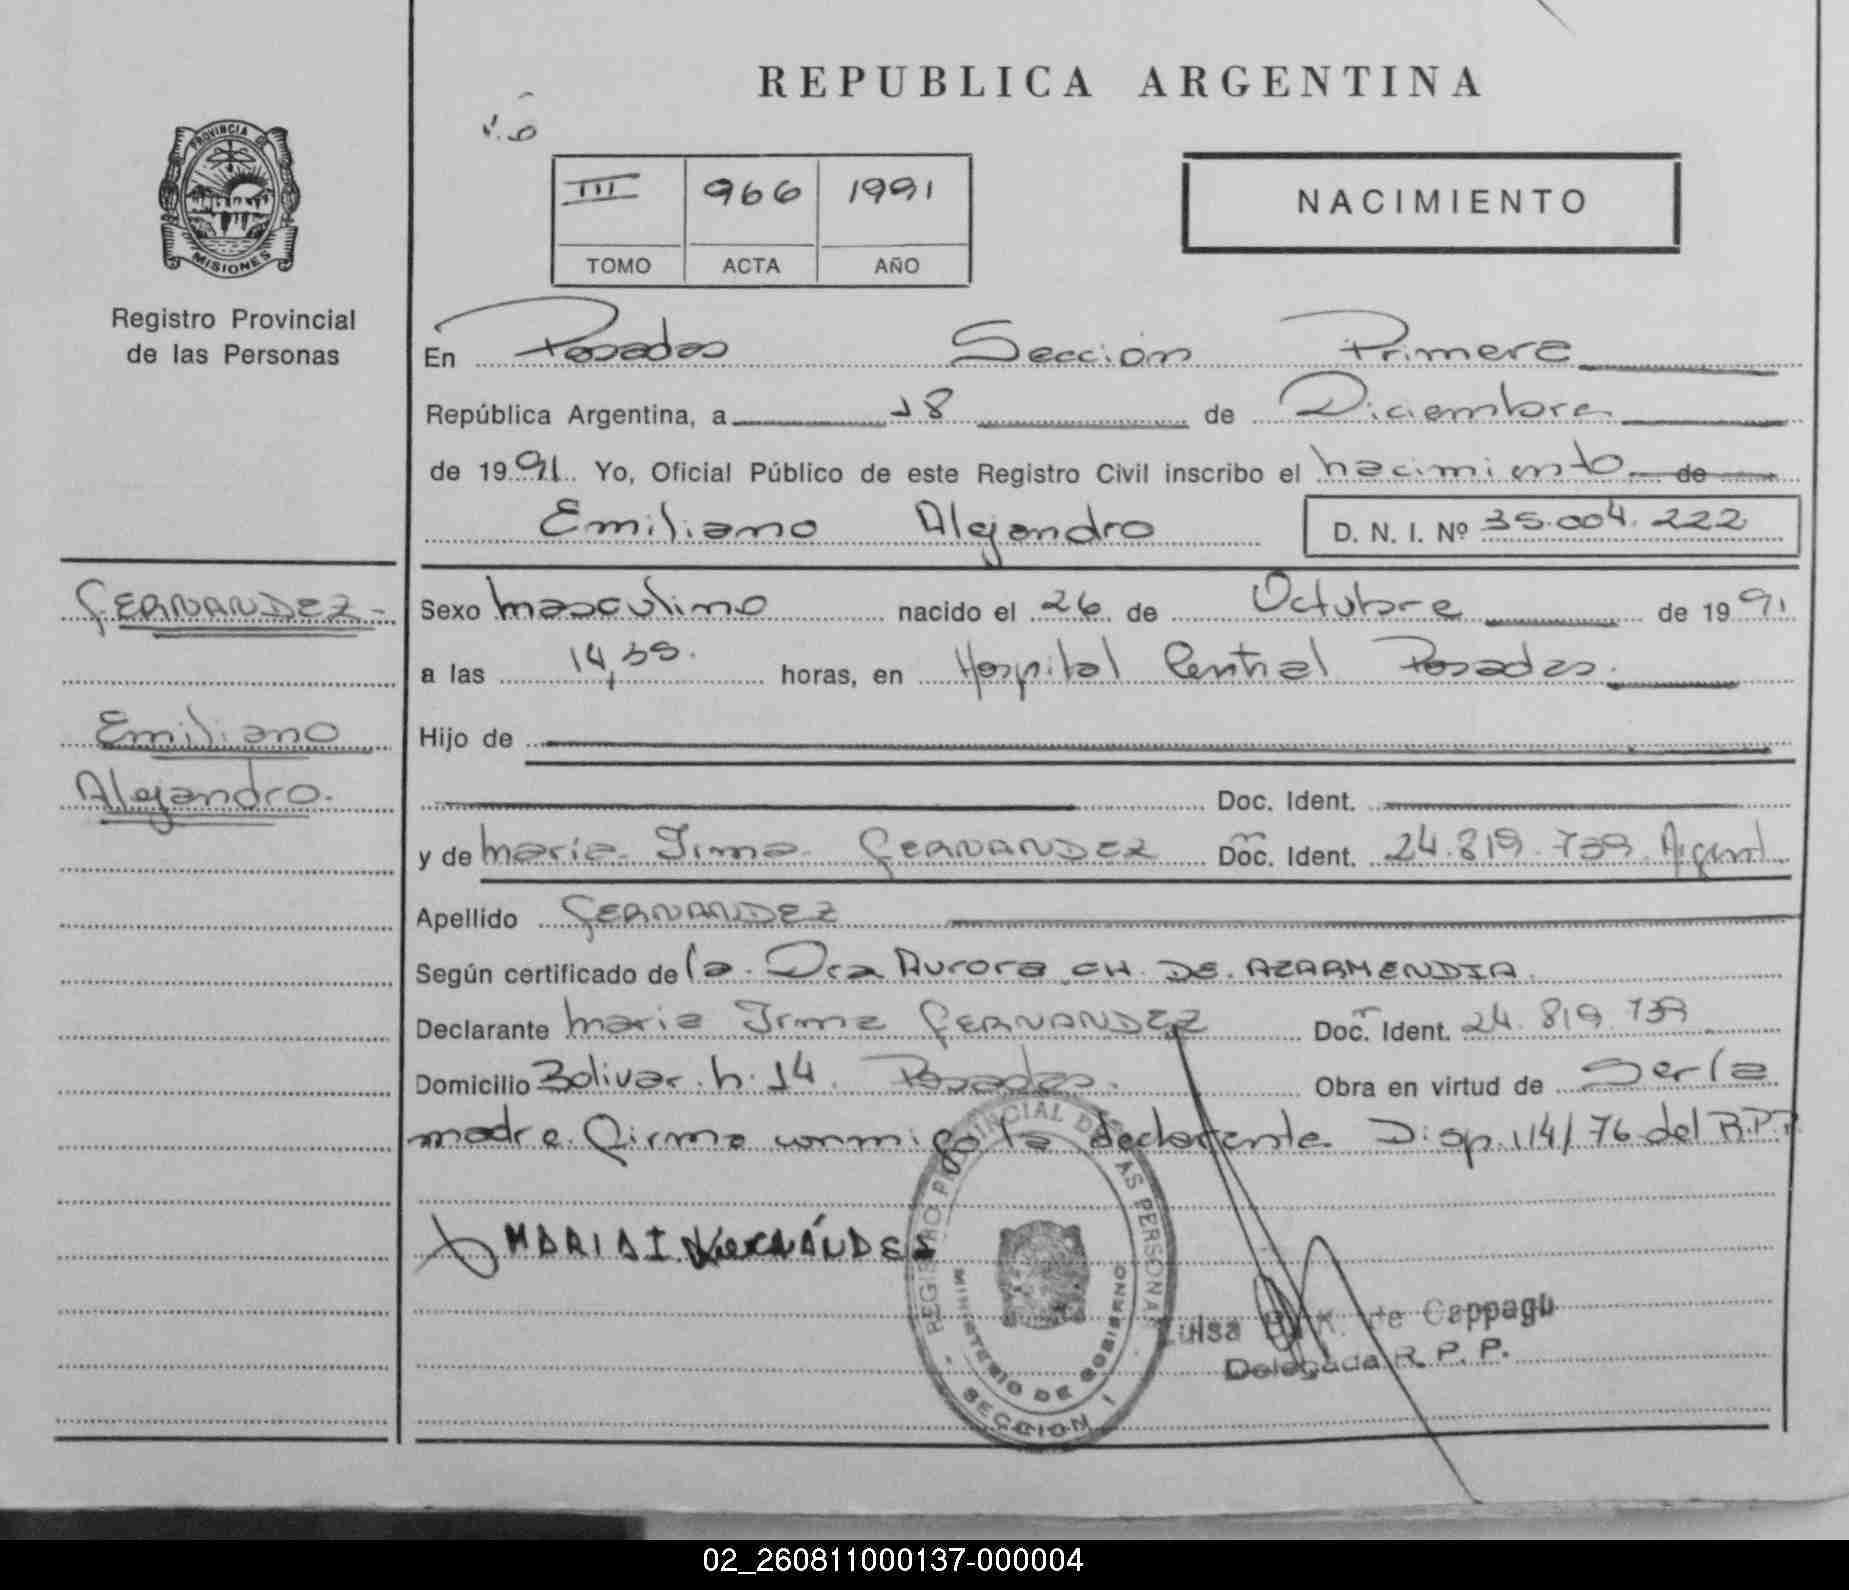 REPUBLICA ARGENTINA
PROVINCIA DE
MISIONES
Registro Provincial
de las Personas
III 966 1991
TOMO ACTA AÑO
NACIMIENTO
En Posadas Sección Primera
República Argentina, a 18 de Diciembre
de 1991. Yo, Oficial Público de este Registro Civil inscribo el nacimiento de
Emiliano Alejandro D. N. I. Nº 35.004.222
FERNANDEZ-
Sexo masculino nacido el 26 de Octubre de 1991
a las 14,35. horas, en Hospital Central Posadas.
Emiliano
Alejandro.
Hijo de
Doc. Ident.
y de Maria Irma FERNANDEZ Doc. Ident. 24.819.739 Argent
Apellido FERNANDEZ
Según certificado de la Dra Aurora CH. DE. AZARMENDIA.
Declarante Maria Irma FERNANDEZ Doc. Ident. 24.819.739
Domicilio Bolivar h. 14. Posadas. Obra en virtud de Ser la
madre. Firma conmigo la declarante. Disp. 114/76 del R.P.P.
MARIA I. FERNÁNDES
REGISTRO PROVINCIAL DE LAS PERSONAS
MINISTERIO DE GOBIERNO
SECCION I
Luisa K. de
Delegada R. P. P.
02_260811000137-000004